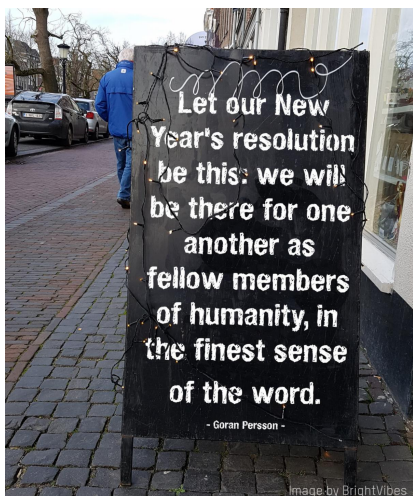 Let our New
Year's resolution
be this: we will
be there for one
another as
fellow members
of humanity, in
the finest sense
of the word.
- Goran Persson -
Image by BrightVibes